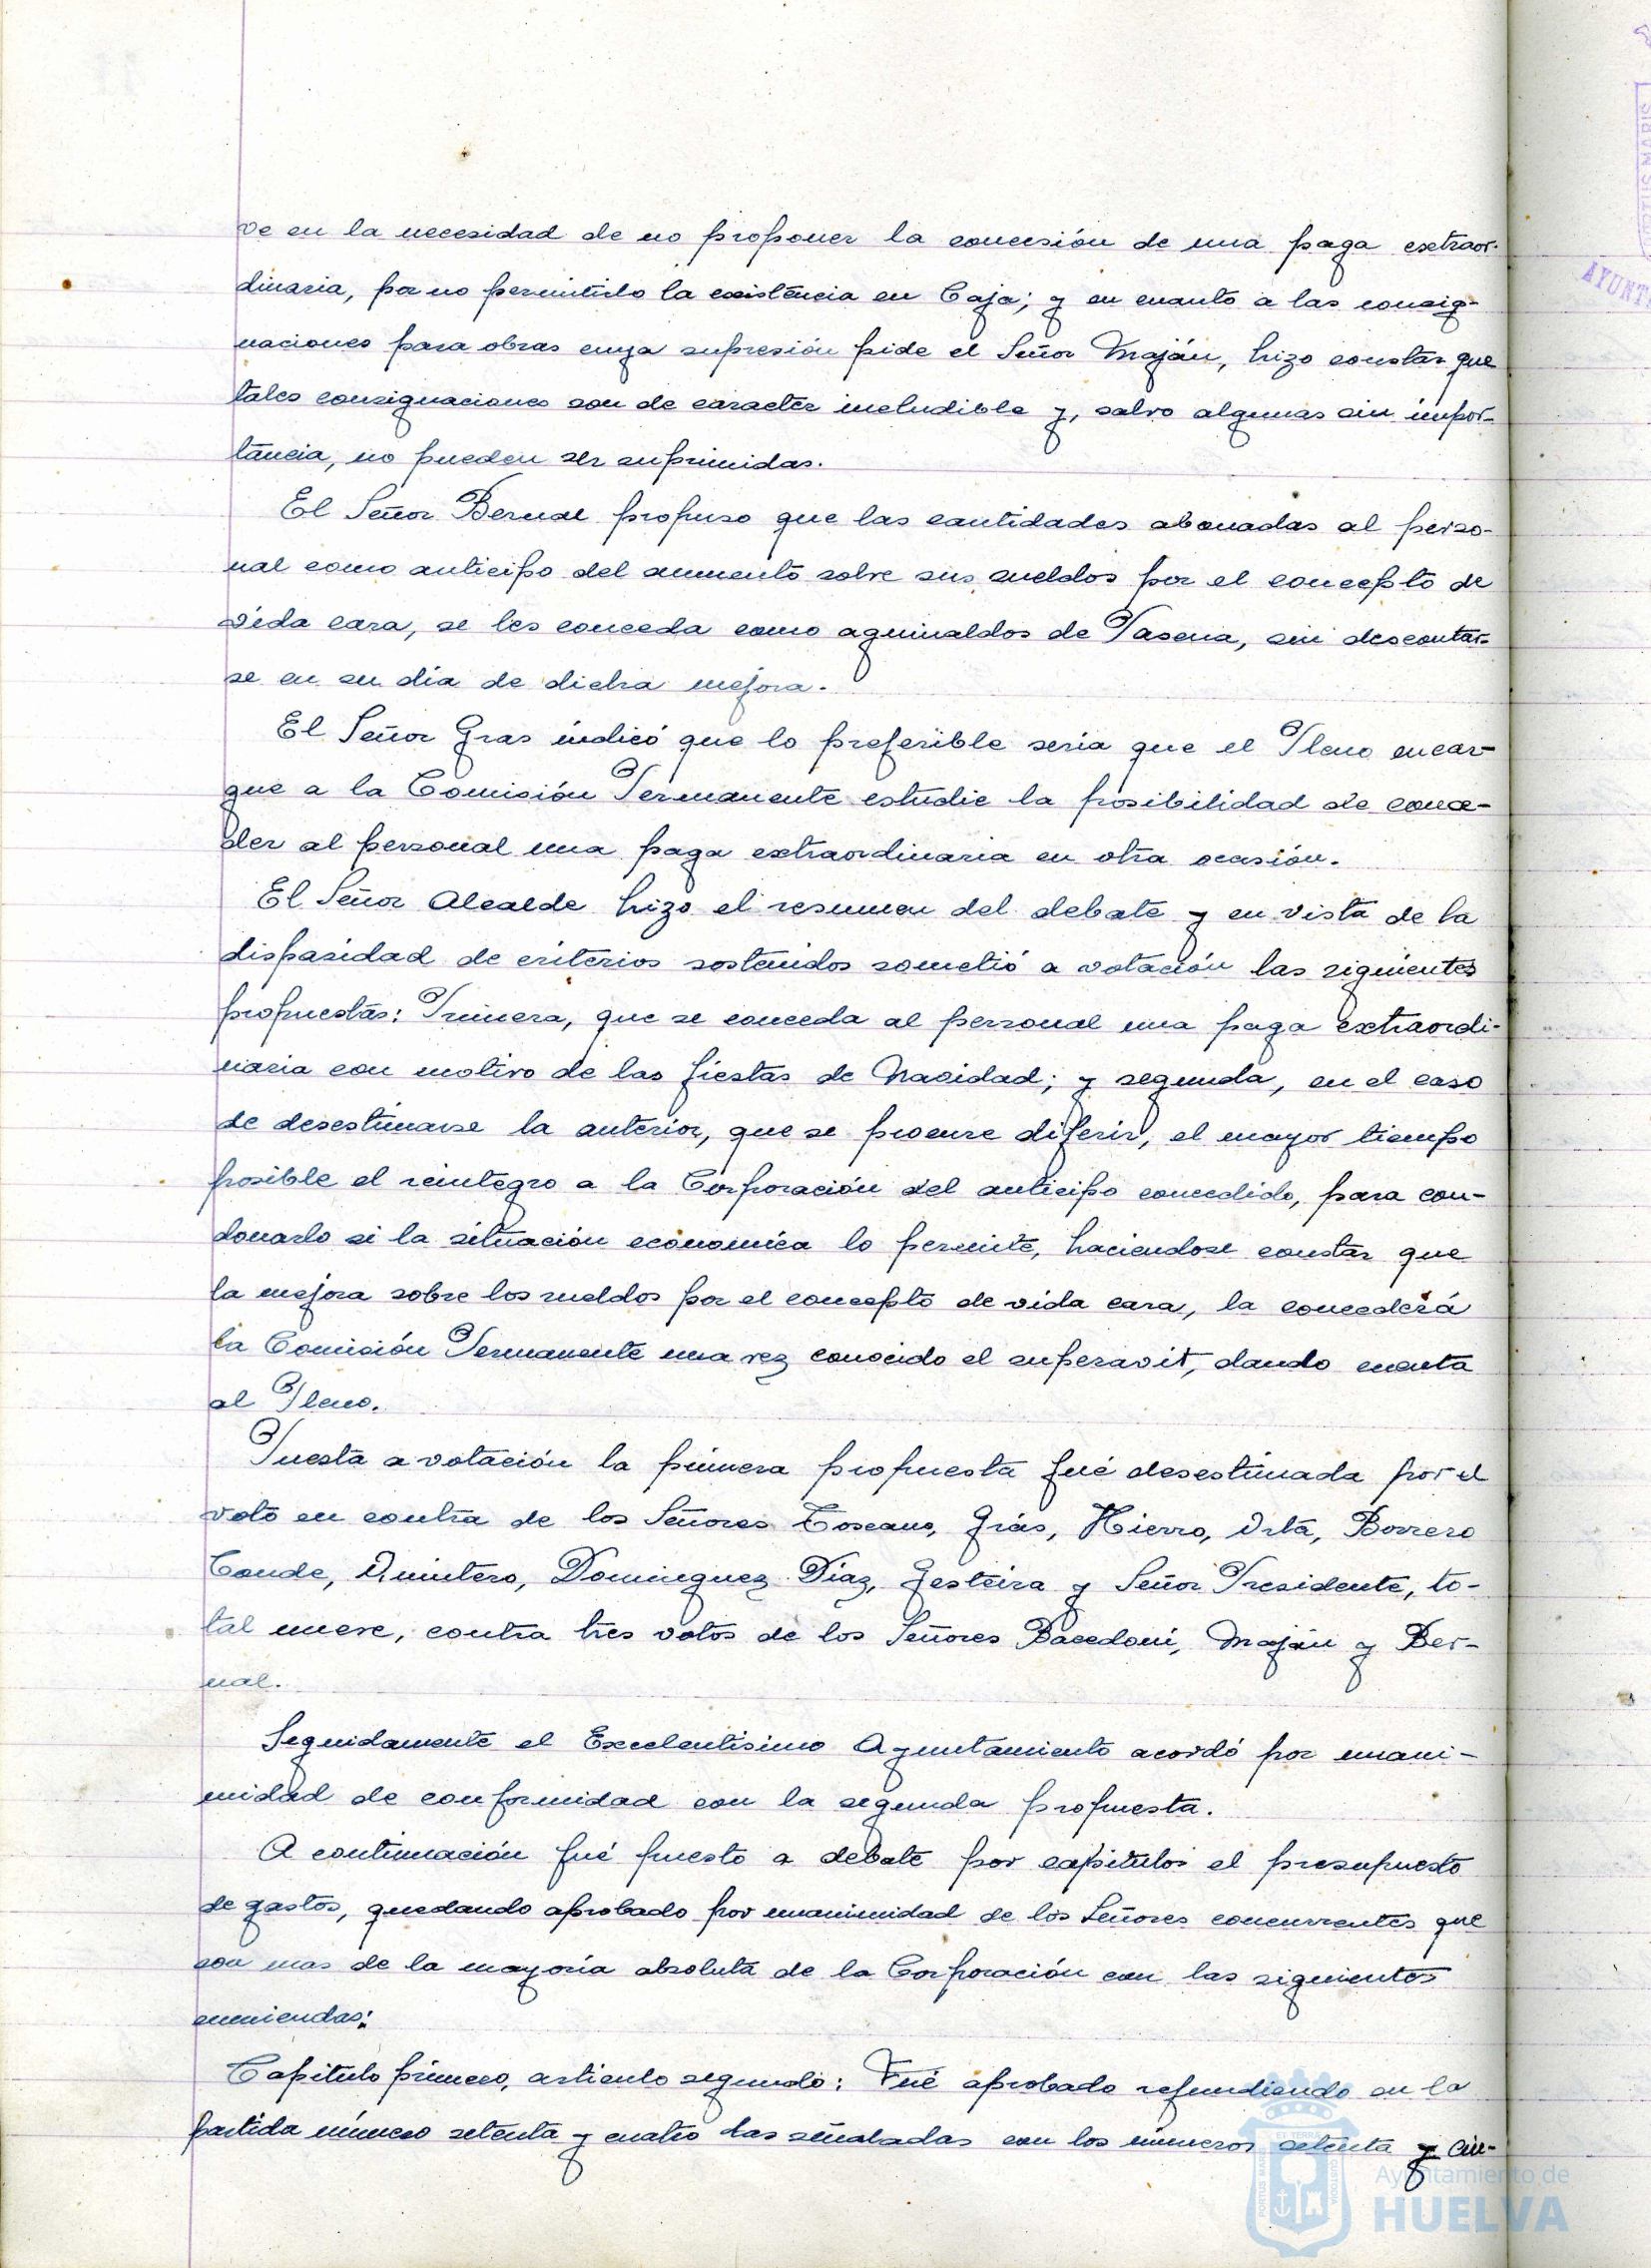 ve en la necesidad de no proponer la concesión de una paga extraor-
dinaria, por no permitirlo la existencia en Caja; y en cuanto a las consig-
naciones para obras cuya supresión pide el Señor Maján, hizo constar que
tales consignaciones son de caracter ineludible y, salvo algunas sin impor-
tancia, no pueden ser suprimidas.
El Señor Bernal propuso que las cantidades abonadas al perso-
nal como anticipo del aumento sobre sus sueldos por el concepto de
vida cara, se les conceda como aguinaldos de Pascua, sin descontar-
se en su dia de dicha mejora.
El Señor Gras indicó que lo preferible seria que el Pleno encar-
gue a la Comisión Permanente estudie la posibilidad de conce-
der al personal una paga extraordinaria en otra ocasión.
El Señor Alcalde hizo el resumen del debate y en vista de la
disparidad de criterios sostenidos sometió a votación las siguientes
propuestas: Primera, que se conceda al personal una paga extraordi-
naria con motivo de las fiestas de Navidad; y segunda, en el caso
de desestimarse la anterior, que se procure diferir, el mayor tiempo
posible el reintegro a la Corporación del anticipo concedido, para con-
donarlo si la situación economica lo permite, haciendose constar que
la mejora sobre los sueldos por el concepto de vida cara, la concederá
la Comisión Permanente una vez conocido el superavit, dando cuenta
al Pleno.
Puesta a votación la primera propuesta fué desestimada por el
voto en contra de los Señores Toscano, Grás, Hierro, Orta, Borrero
Conde, Quintero, Dominguez Diaz, Gesteira y Señor Presidente, to-
tal nueve, contra tres votos de los Señores Bacedoni, Maján y Ber-
nal.
Seguidamente el Excelentisimo Ayuntamiento acordó por unani-
midad de conformidad con la segunda propuesta.
A continuación fué puesto a debate por capitulos el presupuesto
de gastos, quedando aprobado por unanimidad de los Señores concurrentes que
son mas de la mayoría absoluta de la Corporación con las siguientes
enmiendas:
Capitulo primero, articulo segundo: Fué aprobado refundiendo en la
partida número setenta y cuatro las señaladas con los números setenta y cin-
Ayuntamiento de
HUELVA